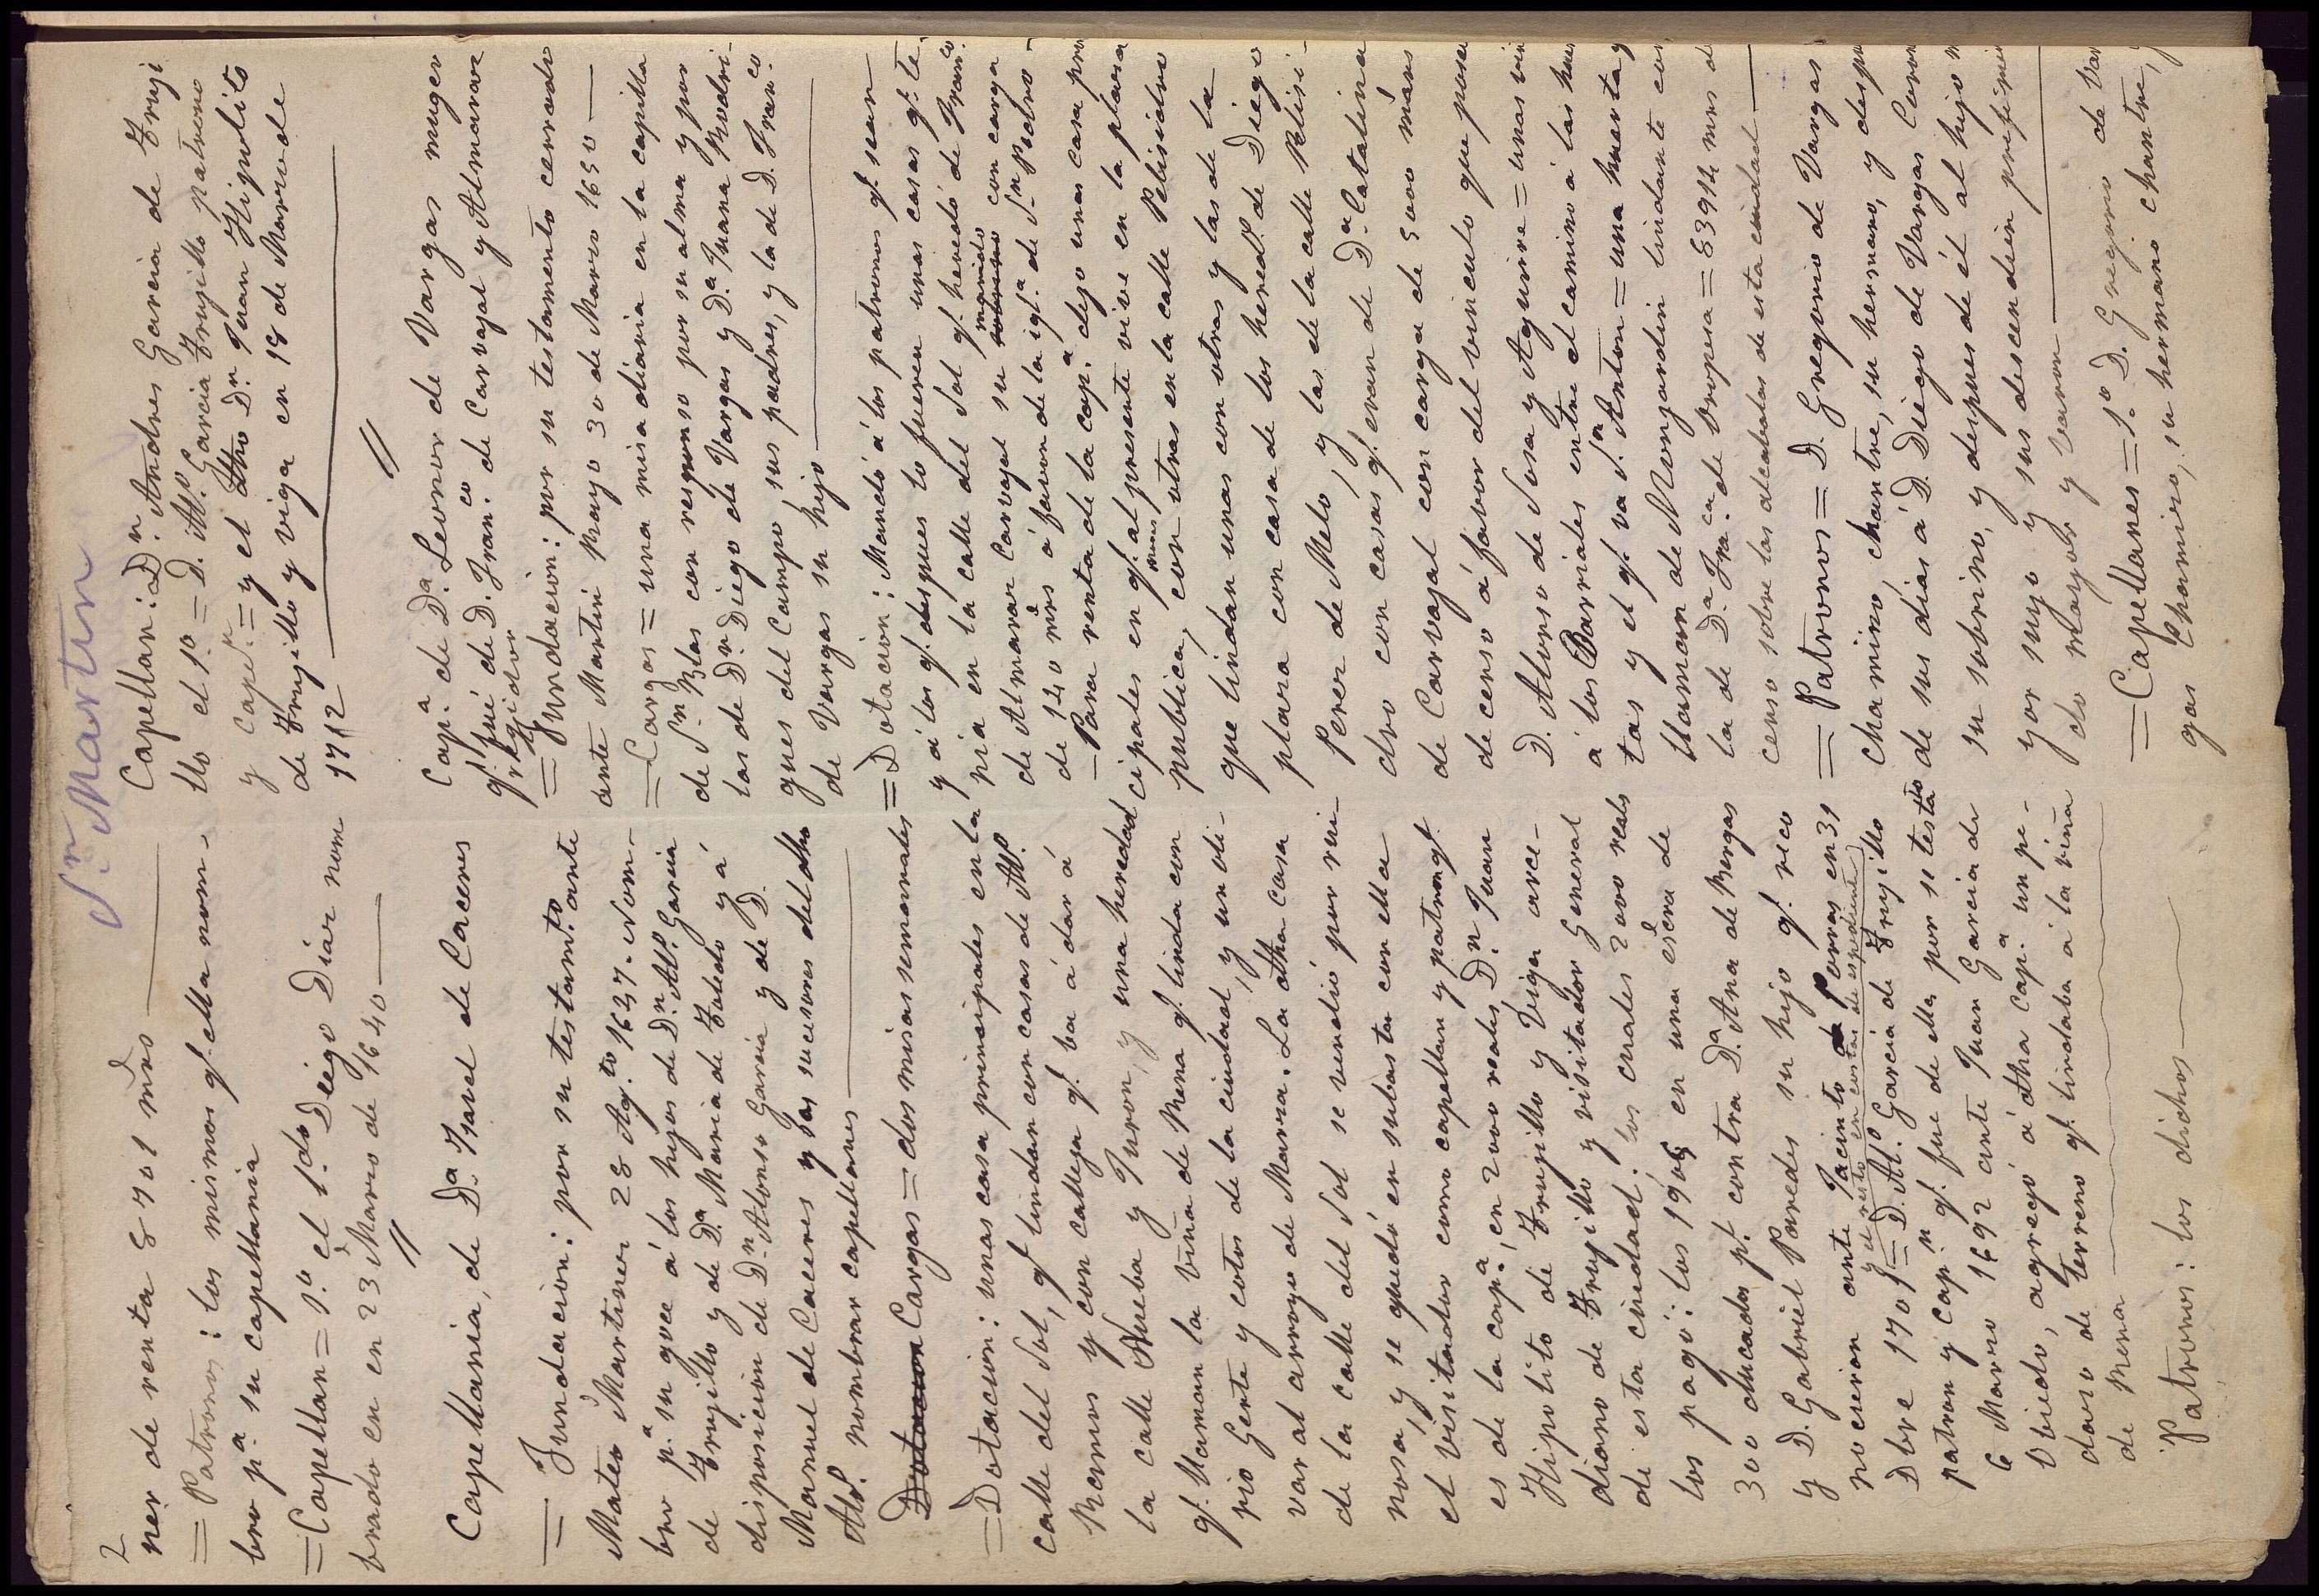 Sn. Martin
2
ner de renta 8701 mrs
= Patronos: los mismos q. ella nom-
bro pa. su capellania
= Capellan = 1.o el l.do Diego Diaz nom
brado en en 23 Marzo de 1640
//
Capellania, de Da. Isavel de Caceres
= Fundacion: por su testamto. ante
Mateo Martinez 28 Agto. 1637. Nom-
bro pa. su goce á los hijos de Dn. Alo. Garcia
de Trujillo y de Da. Maria de Toledo y á
disposicion de Dn. Alonso Garcia y de D.
Manuel de Caceres y los sucesores del dho
Alo. nombrar capellanes
Dotacion Cargas = dos misas semanales
= Dotacion: unas casa principales en la
calle del Sol, q. lindan con casas de Alo.
Ramos y con calleja q. ba á dar á
la calle Nueba y Juron, y una heredad
q. llaman la viña de Mena q. linda con
rio Gerte y cotos de la ciudad, y un oli-
var al arroyo de Marra. La otha casa
de la calle del Sol se vendió por rui-
nosa, y se quedó en subasta con ella
el visitador como capellan y patron q.
es de la capa., en 2000 reales, Dn. Juan
Hipolito de Trujillo y Viga arce-
diano de Trujillo y visitador General
de esta ciudad: los cuales 2000 reals
los pagó: los 1905 en una escra de
300 ducados pl. contra Da. Ana de Bargas
y D. Gabriel Paredes su hijo q. reco
nocieron ante Jacinto de Porras en 31
y el resto en costas de espediente
Dbre 1701 = D. Alo. Garcia de Trujillo
patron y capn. q. fue de ella por su testato
6 Marzo 1692 ante Juan Garcia de
Obiedo, agregó á dha capa. un pe-
dazo de terreno q. lindaba á la viña
de Mena
Patronos: los dichos
Capellan: Dn. Andres Garcia de Truji
llo el 1.o = D. Alo. Garcia Trujillo patrono
y capen. = y el dho Dn. Juan Hipolito
de Trujillo y viga en 18 de Marzo de
1712
//
Capa. de Da. Leonor de Vargas muger
q. fué de D. Franco. de Carvajal y Almaraz
regidor
= Fundacion: por su testamento cerrado
ante Martin Mayo 30 de Marzo 1650
= Cargas = una misa diaria en la capilla
de Sn. Blas con responso por su alma y por
las de Dn. Diego de Vargas y Da. Juana Rodri-
gues del Campo, sus padres, y la de D. Franco.
de Vargas su hijo
= Dotacion: Mandó á los patronos q. sean
y á los q. despues lo fueren unas casas q. te-
nia en la calle del Sol q. heredó de Franco.
de Almaraz Carvajal su sobrino marido con carga
de 140 mrs á favor de la igla. de Sn Pedro
- Para renta de la capa. dejo unas casa prin
cipales en q. al presente vive en la plaza
publica, con otras en la calle Pelisidro
que lindan unas con otras y las de la
plaza con casa de los hered. de Diego
Perez de Melo, y las de la calle Pelisi-
dro con casas q. eran de Da. Catalina
de Carvajal con carga de 5000 mars
de censo á favor del vinculo que posee
D. Alonso de Sosa y Aguirre = unas viñ
á los Barriales entre el camino á las huer
tas y el q. va S. Anton = una huerta q
llaman de Monjardin lindante con
la de Da. Fraca. de Oropesa = 63914 mrs de
censo sobre las alcabalas de esta ciudad
= Patronos = D. Gregorio de Vargas
Chamizo, chantre, su hermano, y despu
de sus dias á D. Diego de Vargas Coron
su sobrino, y despues de él al hijo m
yor suyo y sus descendien prefirien
do mayor y varon
= Capellanes = 1.o D. Gregorio de Var
gas Chamizo, su hermano chantre, y